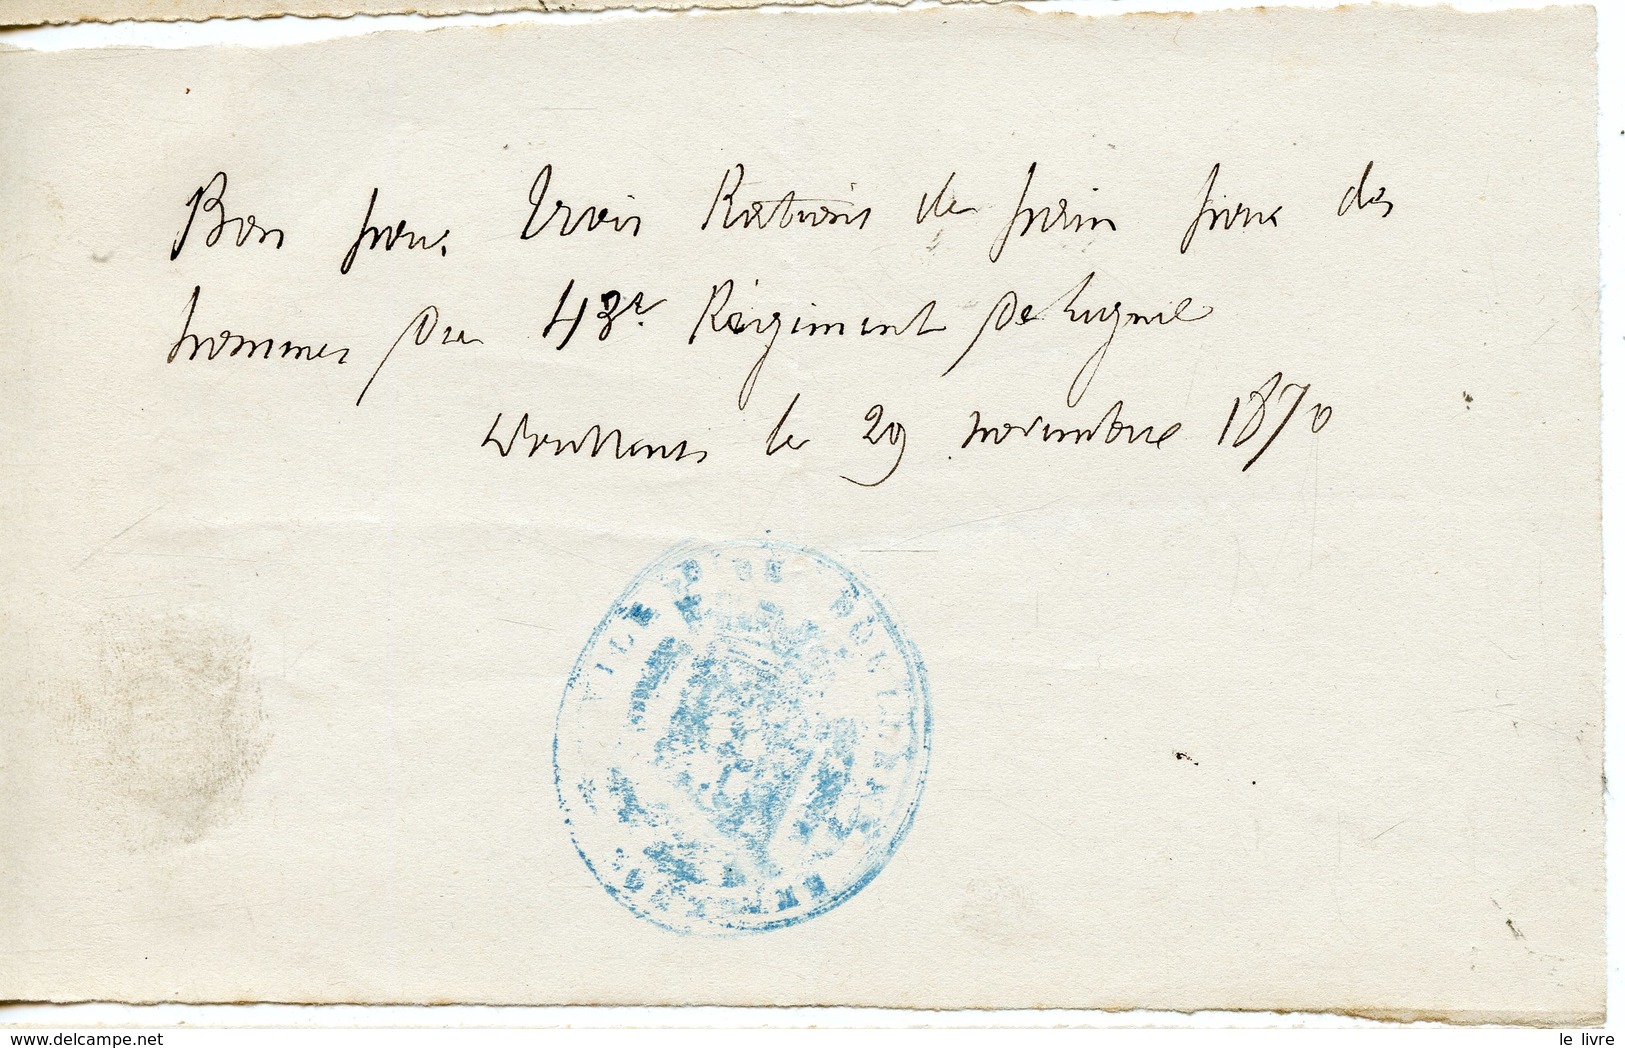 Bon pour Trois Rations de pain pour des
hommes du 43e Régiment de Ligne
Doullens le 29 novembre 1870
VILLE DE DOULLENS
SOMME
www.delcampe.net
le livre